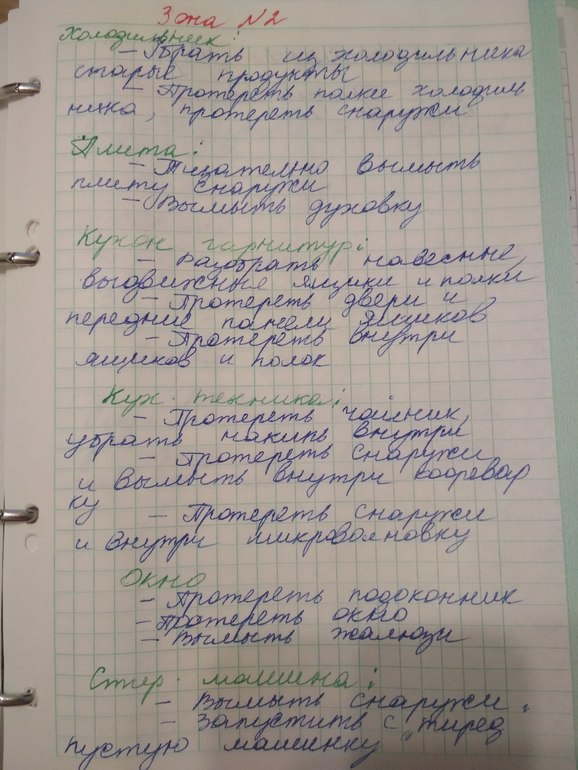 Зона №2
Холодильник:
- Убрать из холодильника
старые продукты
- Протереть полки холодиль
ника, протереть снаружи
Плита:
- Тщательно вымыть
плиту снаружи
- Вымыть духовку
Кухон гарнитур:
- Разобрать навесные
выдвижные ящики и полки
- Протереть двери и
передние панели ящиков
- Протереть внутри
ящиков и полок
Кух. техника:
- Протереть чайник,
убрать накипь внутри
- Протереть снаружи
и вымыть внутри кофевар
ку
- Протереть снаружи
и внутри микроволновку
Окно
- Протереть подоконник
- Протереть окно
- Вымыть жалюзи
Стир. машина:
- Вымыть снаружи
- Запустить с "тиред"
пустую машинку